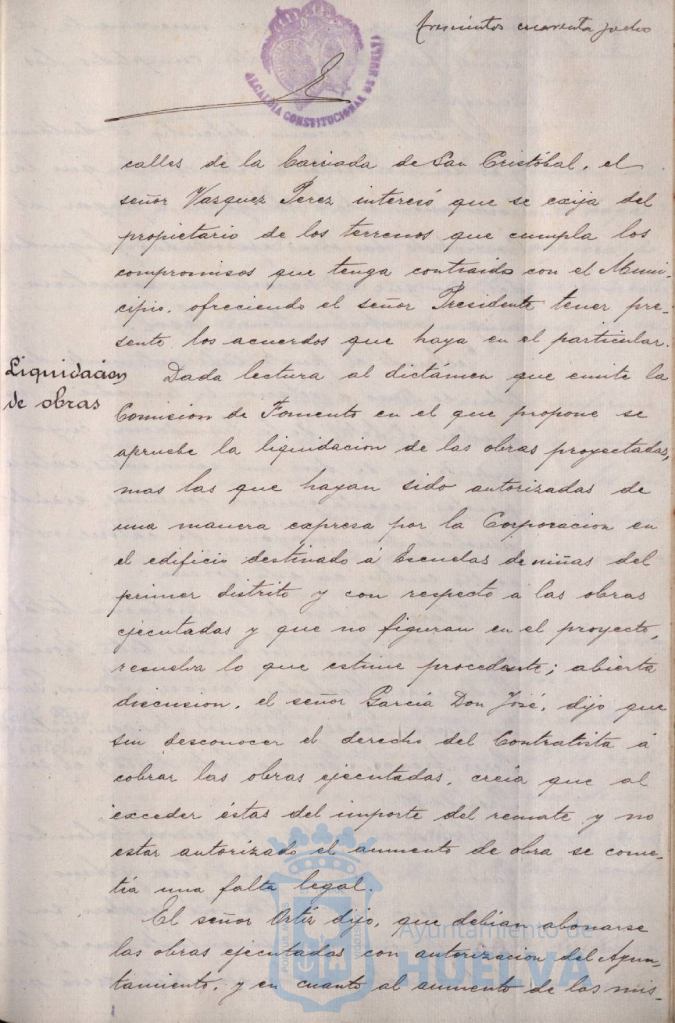 trescientos cuarenta y ocho
ALCALDIA CONSTITUCIONAL DE HUELVA
calles de la barriada de San Cristóbal, el
señor Vazquez Perez interesó que se exija del
propietario de los terrenos que cumpla los
compromisos que tenga contraido con el Muni-
cipio, ofreciendo el señor Presidente tener pre-
sente los acuerdos que haya en el particular.
Liquidacion
de obras
Dada lectura al dictámen que emite la
Comision de Fomento en el que propone se
apruebe la liquidacion de las obras proyectadas,
mas las que hayan sido autorizadas de
una manera expresa por la Corporacion en
el edificio destinado á Escuelas de niñas del
primer distrito y con respecto á las obras
ejecutadas y que no figuran en el proyecto,
resuelva lo que estime procedente; abierta
discusion, el señor García Don José, dijo que
sin desconocer el derecho del Contratista á
cobrar las obras ejecutadas, creía que al
exceder éstas del importe del remate y no
estar autorizado el aumento de obra se come-
tía una falta legal.
El señor Ortiz dijo, que debian abonarse
las obras ejecutadas con autorizacion del Ayun-
tamiento, y en cuanto al aumento de las mis-
Ayuntamiento de
HUELVA